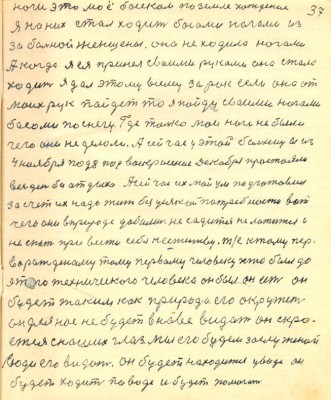 37
ноги это моё босиком по земле хождения
Я на них стал ходит босыми ногами из
за болной женщены. она не ходила ногами
А когда я ея принел своими руками она стала
ходит я дал этому всему зарок если она от
моих рук пайдет то я пойду своими ногами
босому по снегу. Где толко мои ноги не были
чего они не делоли. А сейчас у этой
4 ноября под 8 под воскрешение Декабря
без отдыха. А сейчас их
за счет их надо жит без усякой потребности вот
чего они в природе добились не садится не лажится
не спит вести себя к тому пер
ворожденому тому первому человеку кто был до
этого техническего человека он был он ест он
будет таким как природа его окружает
он для нас не будет вновь видат он скро
ется с наших глаз мы его будем заслужоной
Люди его видат. он будет находится у воде он
будет ходит по воде и будет помогат